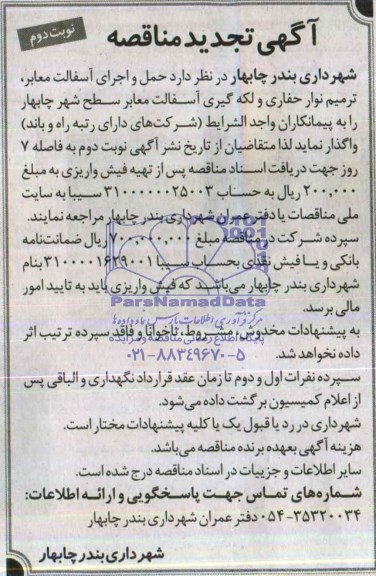 نوبت دوم
آگهی تجدید مناقصه
شهرداری بندر چابهار در نظر دارد حمل و اجرای آسفالت معابر،
ترمیم نوار حفاری و لکه گیری آسفالت معابر سطح شهر چابهار
را به پیمانکاران واجد الشرایط (شرکت‌های دارای رتبه راه و باند)
واگذار نماید لذا متقاضیان از تاریخ نشر آگهی نوبت دوم به فاصله ۷
روز جهت دریافت اسناد مناقصه پس از تهیه فیش واریزی به مبلغ
۲۰۰,۰۰۰ ریال به حساب ۳۱۰۰۰۰۰۰۲۵۰۰۳ سیبا به سایت
ملی مناقصات یا دفتر عمران شهرداری بندر چابهار مراجعه نمایند.
سپرده شرکت در مناقصه مبلغ ۷۰۰,۰۰۰,۰۰۰ ریال ضمانت‌نامه
بانکی و یا فیش نقدی بحساب سیبا ۳۱۰۰۰۰۱۶۲۹۰۰۱ بنام
شهرداری بندر چابهار می‌باشد که فیش واریزی باید به تایید امور
مالی برسد.
ParsNamadData
مرکز فرآوری اطلاعات پارس نماد داده‌ها
به پیشنهادات مخدوش، مشروط، ناخوانا و فاقد سپرده ترتیب اثر
داده نخواهد شد.
پایگاه اطلاع رسانی مناقصه و مزایده
۰۲۱-۸۸۳۴۹۶۷۰-۵
سپرده نفرات اول و دوم تا زمان عقد قرارداد نگهداری و الباقی پس
از اعلام کمیسیون برگشت داده می‌شود.
شهرداری در رد یا قبول یک یا کلیه پیشنهادات مختار است.
هزینه آگهی بعهده برنده مناقصه می‌باشد.
سایر اطلاعات و جزییات در اسناد مناقصه درج شده است.
شماره‌های تماس جهت پاسخگویی و ارائه اطلاعات:
۰۵۴-۳۵۳۲۰۰۳۴ دفتر عمران شهرداری بندر چابهار
شهرداری بندر چابهار